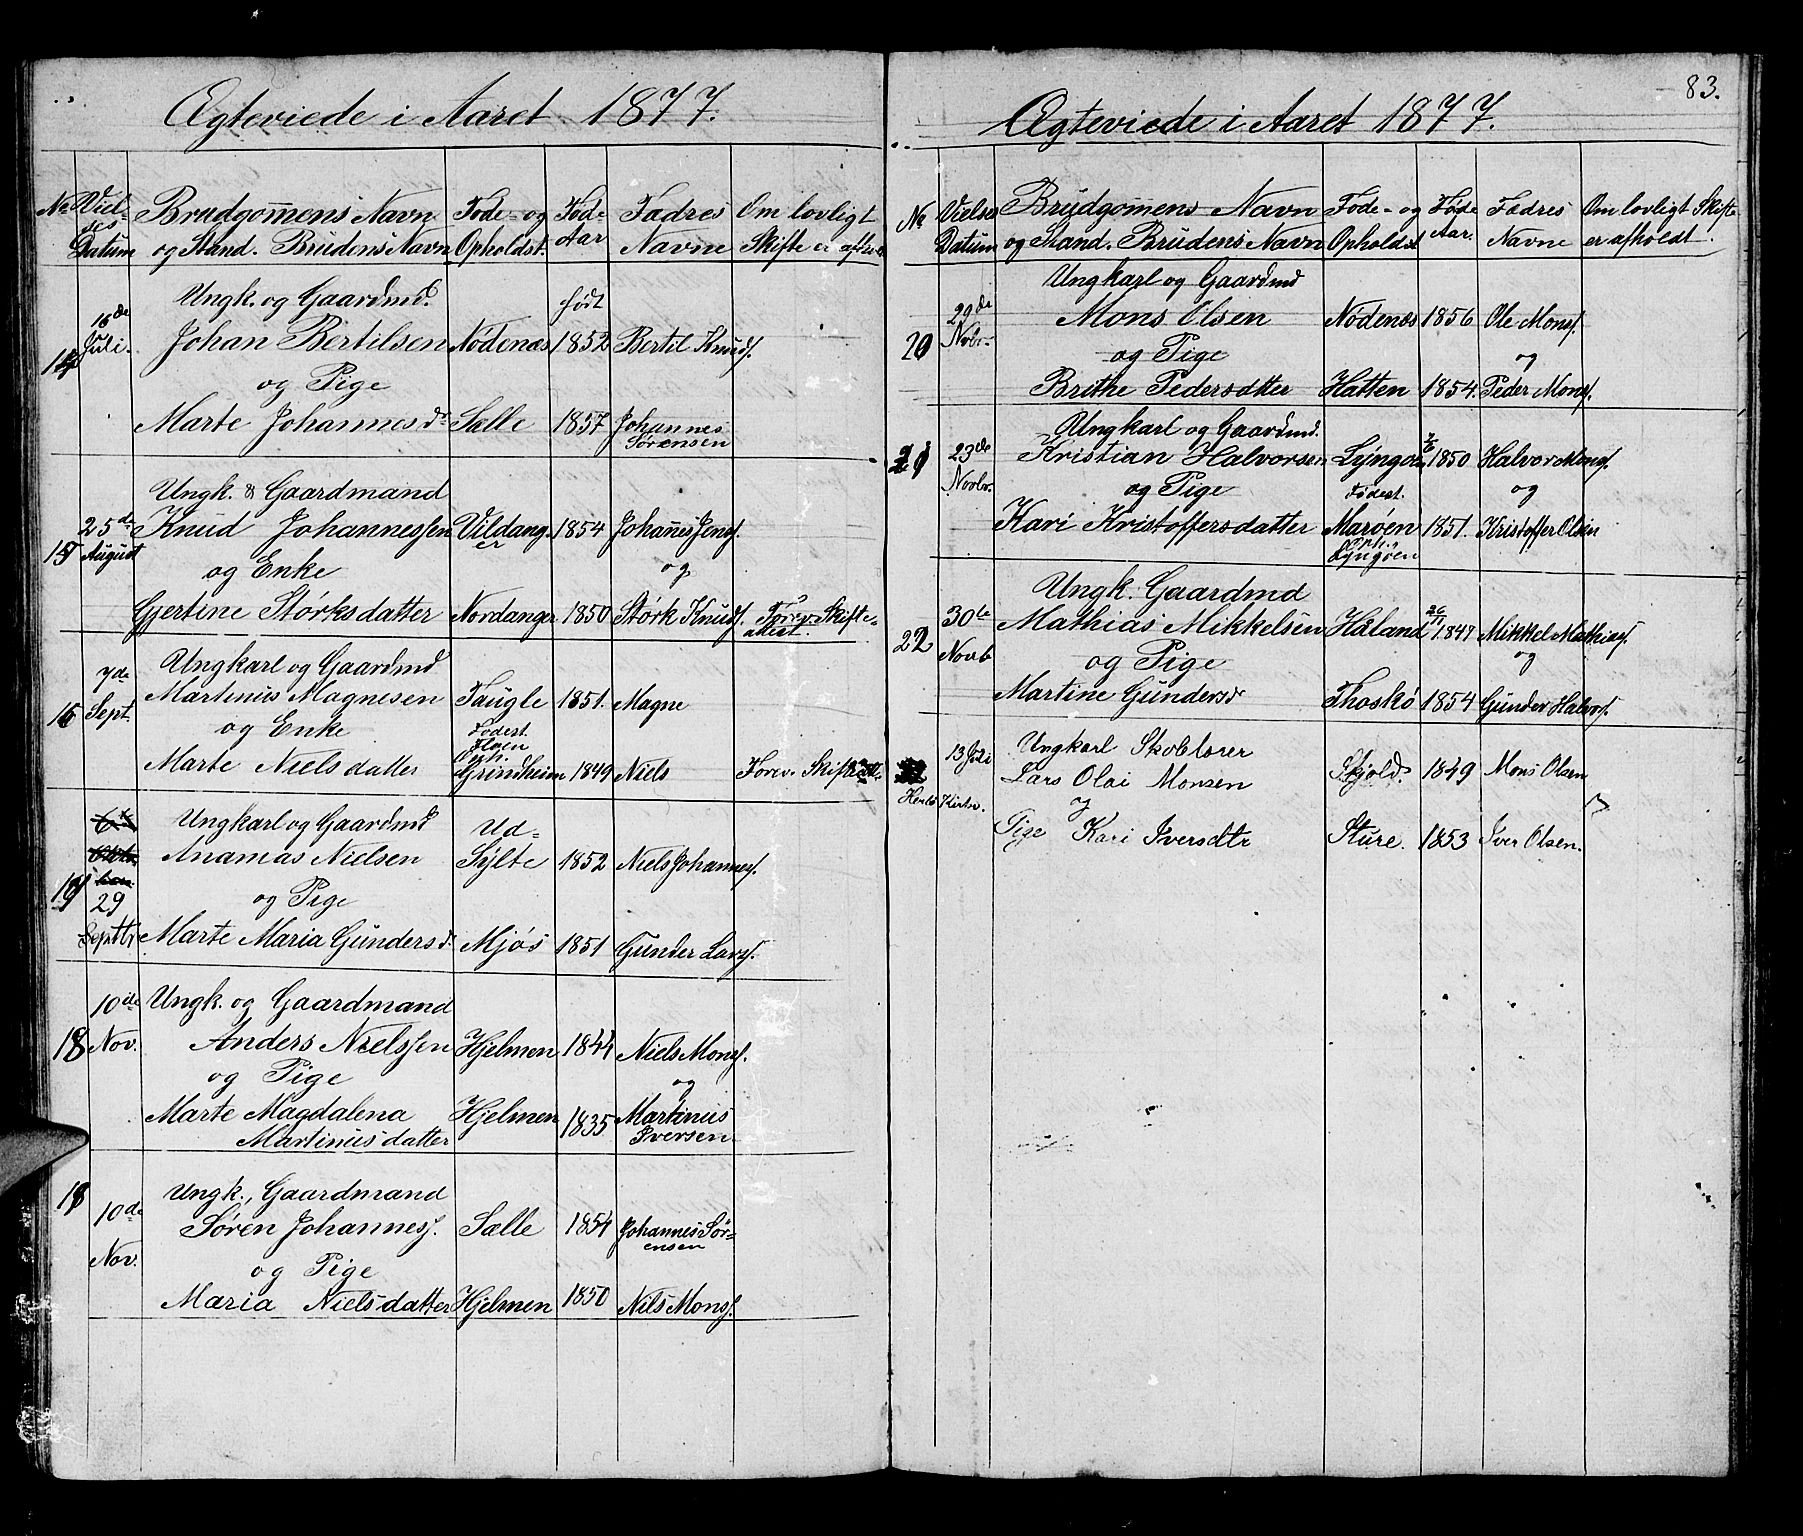 Ægteviede i Aaret 1877.
No Viel- ses Datum Brudgomens Navn og Stand. Brudens Navn Føde- og Opholdst. Føde- Aar Fædres Navne Om lovligt Skifte er afh
Ungk. og Gaardmd. født
14 16de Juli. Johan Bertilsen Nødenæs 1852 Bertil Knuds.
og Pige
Marte Johannesdr Sælle 1857 Johannes Sørensen
Ungk. & Gaardmand
15 25de August Knud Johannessen Vildanger 1854 Johanes Jens.
og Enke og
Gjertine Størksdatter Nordanger 1850 Størk Knuds. Forev. Skifte- attest.
Ungkarl og Gaardmd
16 7de Sept. Martinus Magnesen Taugle 1851. Magne
og Enke Fødest. Floen
Marte Nielsdatter Oph. Grindheim 1849 Niels Forev. Skifteatt.
Ungkarl og Gaardmd Ud-
29 Septbr Ananias Nielsen Sylte 1852 Niels Johannes.
og Pige
Marte Maria Gundersd. Mjøs 1851 Gunder Lars.
10de Ungk. og Gaardmand
18 Nov. Anders Nielssen Hjelmen 1844 Niels Mons.
og Pige og
Marte Magdalena Martinusdatter Hjelmen 1835 Martinus Iversen
Ungk., Gaardmand
10de Nov. Søren Johannes. Sælle 1854 Johannes Sør- ensen
og Pige
Maria Nielsdatter Hjelmen 1850 Nils Mons.
83.
Ægteviede i Aaret 1877.
No Vielses Datum Brudgomens Navn og Stand. Brudens Navn Føde- og Opholdst Føde Aar. Fædres Navne Om lovligt Skifte er afholdt.
Ungkarl og Gaardmd
20 29de Novbr. Mons Olsen Nødenæs 1856 Ole Mons.
og Pige og
Brithe Pedersdatter Hatten 1854. Peder Mons.
Ungkarl og Gaardmd.
21 23de Novbr. Kristian Halvorsen Lyngøen 1850 Halvor Mons.
og Pige Fødest. og
Kari Kristoffersdatter Marøen 1851. Kristoffer Olsen
Oph. Lyngøen
Ungk. Gaardmd
22 30te Novb Mathias Mikkelsen Håland 26/11 1847 Mikkel Mathias.
og Pige og
Martine Gundersdr Thoskø 1854 Gunder Halvs.
13 Juli Ungkarl Skolelærer
Herlø Kirke. Lars Olai Monsen Skjold. 1849 Mons Olsen
og
Pige Kari Iversdtr Sture. 1853 Iver Olsen.